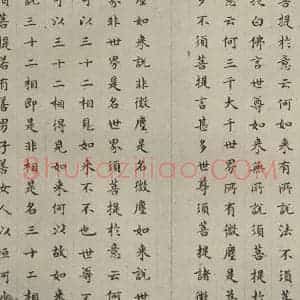 提於意云何如來有所說法不須菩
白佛言世尊如來无所說須菩提於
意云何三千大千世界所有微塵是
多不須菩提言甚多世尊須菩提諸微
塵如來說非微塵是名微塵如來說世
界非世界是名世界須菩提於意云何
可以三十二相見如來不不也世尊不
可以三十二相得見如來何以故如來
說三十二相即是非相是名三十二相
菩提若有善男子善女人以恒河
Shufaziliao.COM